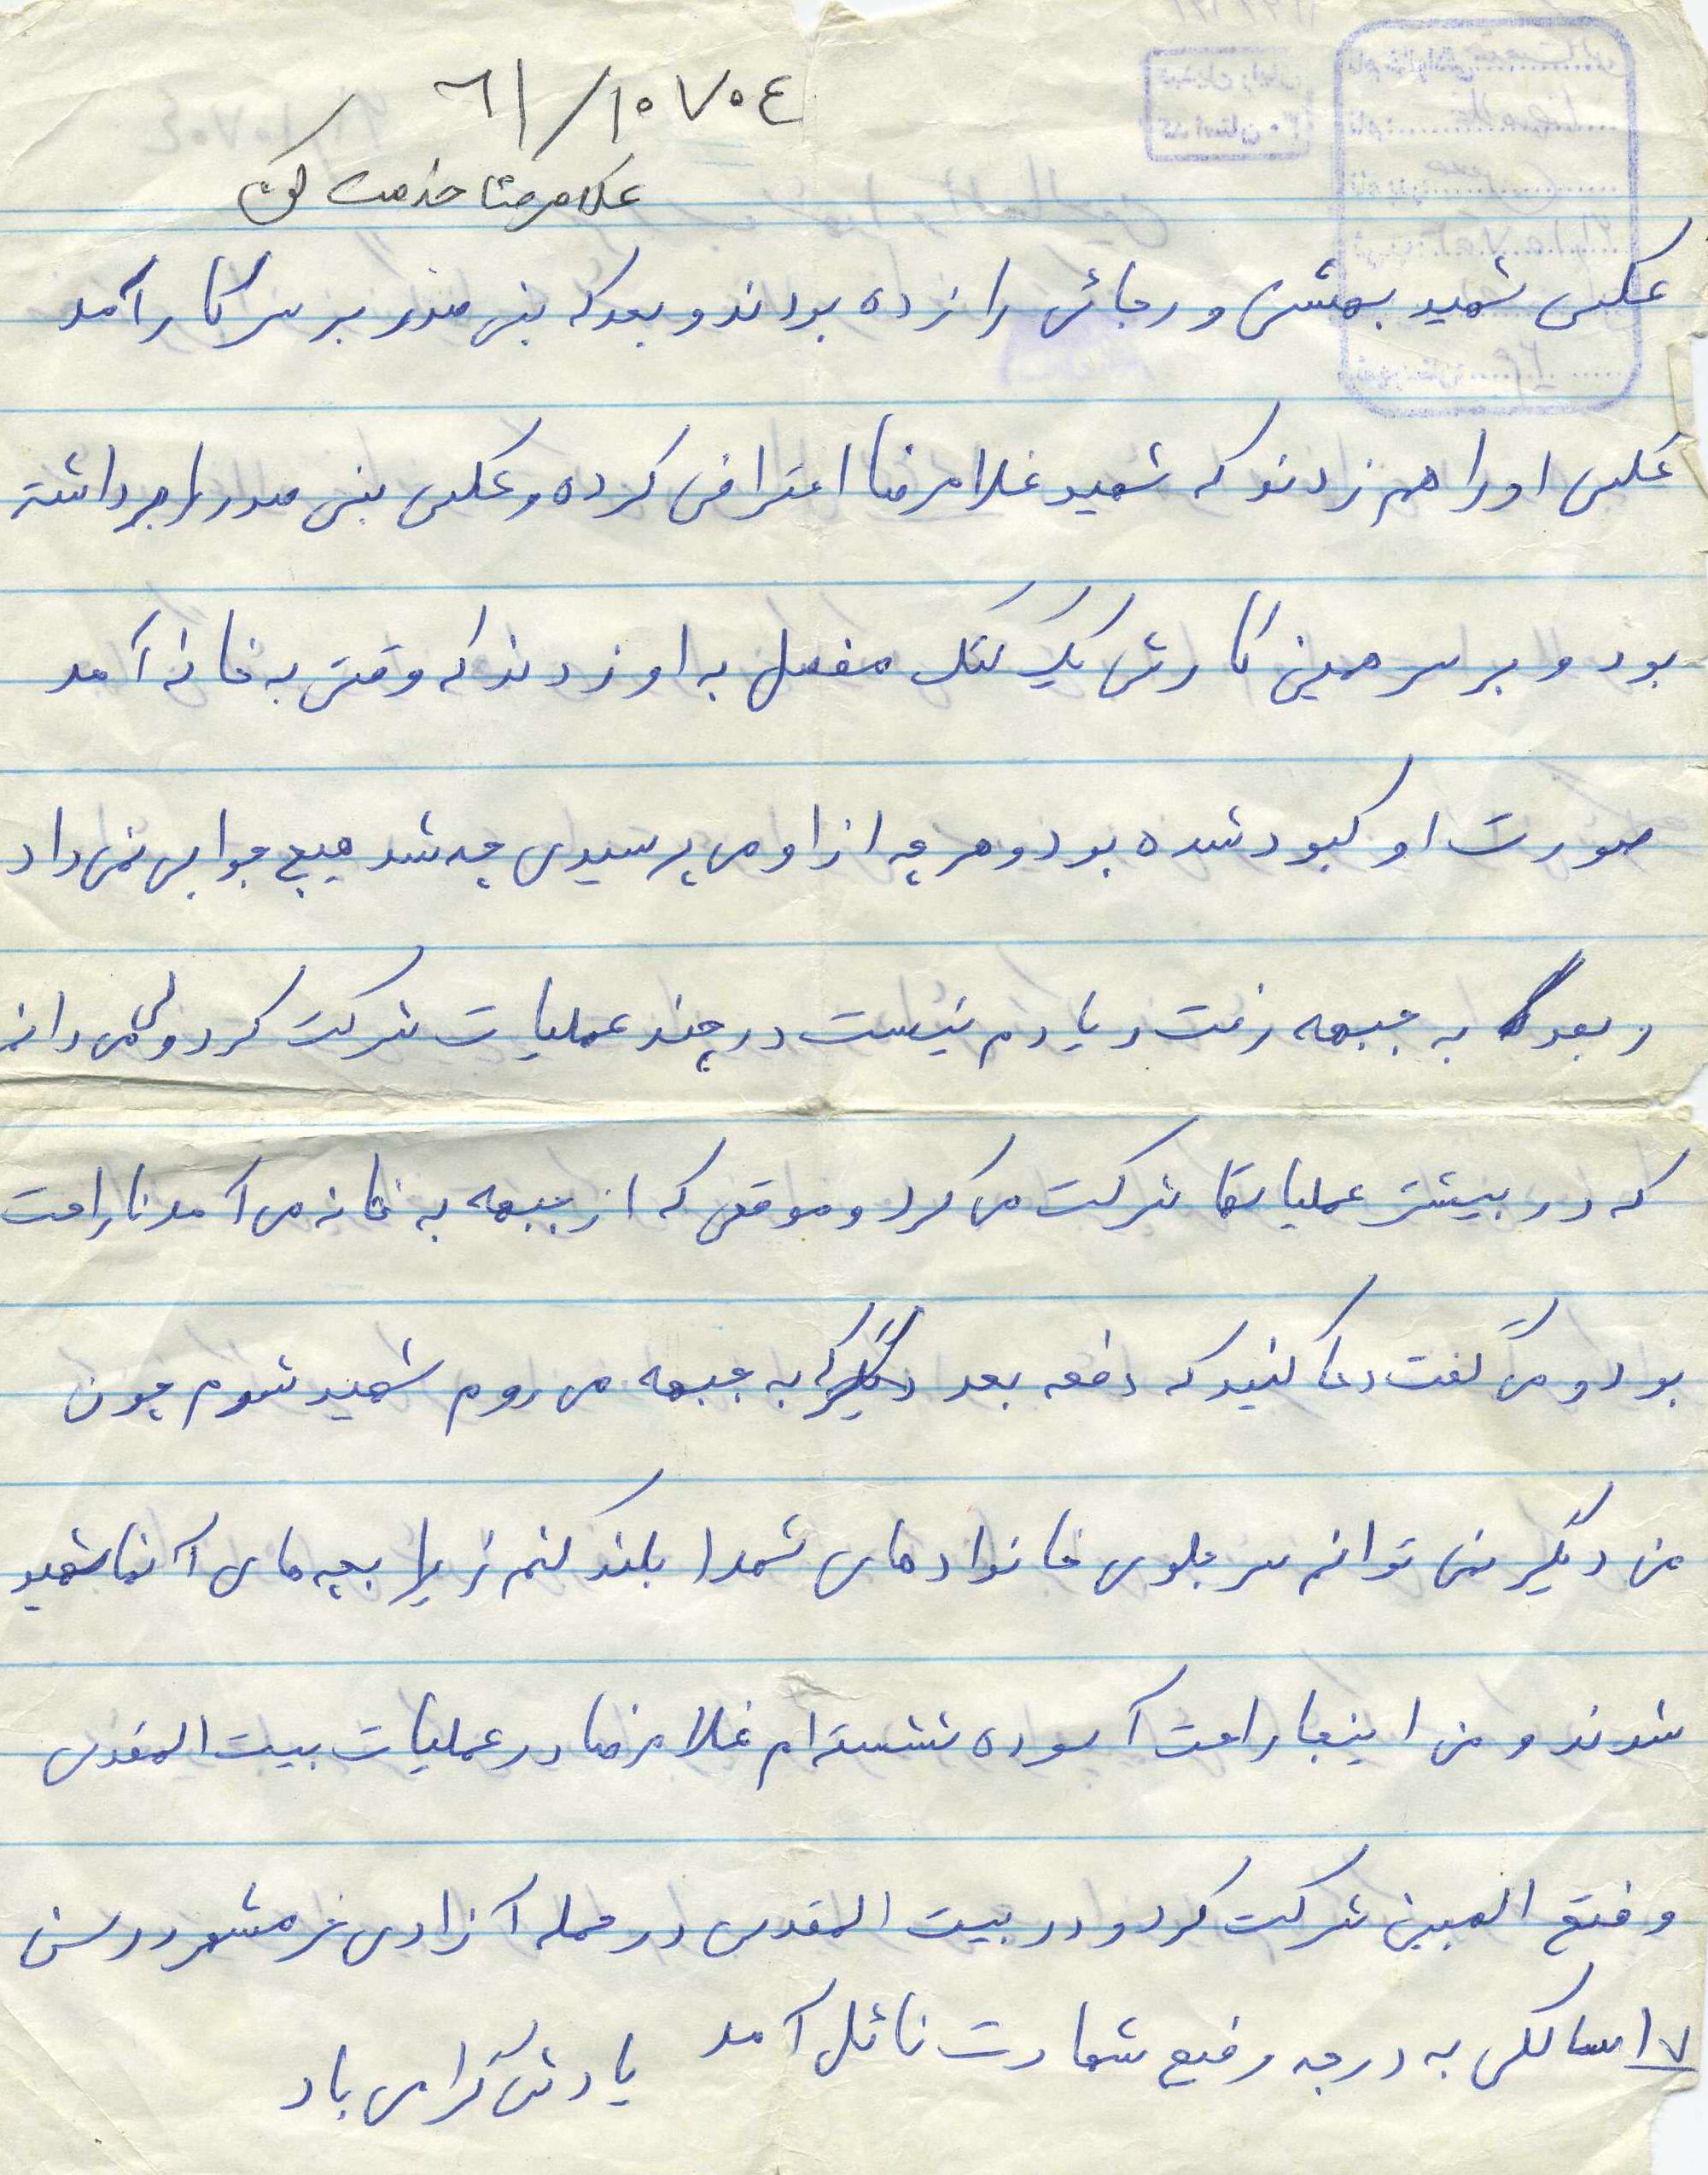 ٦١/١٠٧٠٤
غلامرضا خدمت کن
عکس شهید بهشتی و رجائی را زده بودند و بعد که بنی صدر بر سر کار آمد
عکس او را هم زدند که شهید غلامرضا اعتراض کرده و عکس بنی صدر را برداشته
بود و بر سر همین کارش یک کتک مفصل به او زدند که وقتی به خانه آمد
صورت او کبود شده بود و هر چه از او می پرسیدی چه شد هیچ جوابی نمی داد
و بعد به جبهه رفت و یادم نیست در چند عملیات شرکت کرد ولی می دانم
که در بیشتر عملیاتها شرکت می کرد و موقعی که از جبهه به خانه می آمد ناراحت
بود و می گفت دعا کنید که دفعه بعد که به جبهه می روم شهید شوم چون
من دیگر نمی توانم سر جلوی خانوادهای شهدا بلند کنم زیرا بچه های آنها شهید
شدند و من اینجا راحت آسوده نشسته ام غلامرضا در عملیات بیت المقدس
و فتح المبین شرکت کرد و در بیت المقدس در حمله آزادی خرمشهر در سن
١٧ سالگی به درجه رفیع شهادت نائل آمد یادش گرامی باد